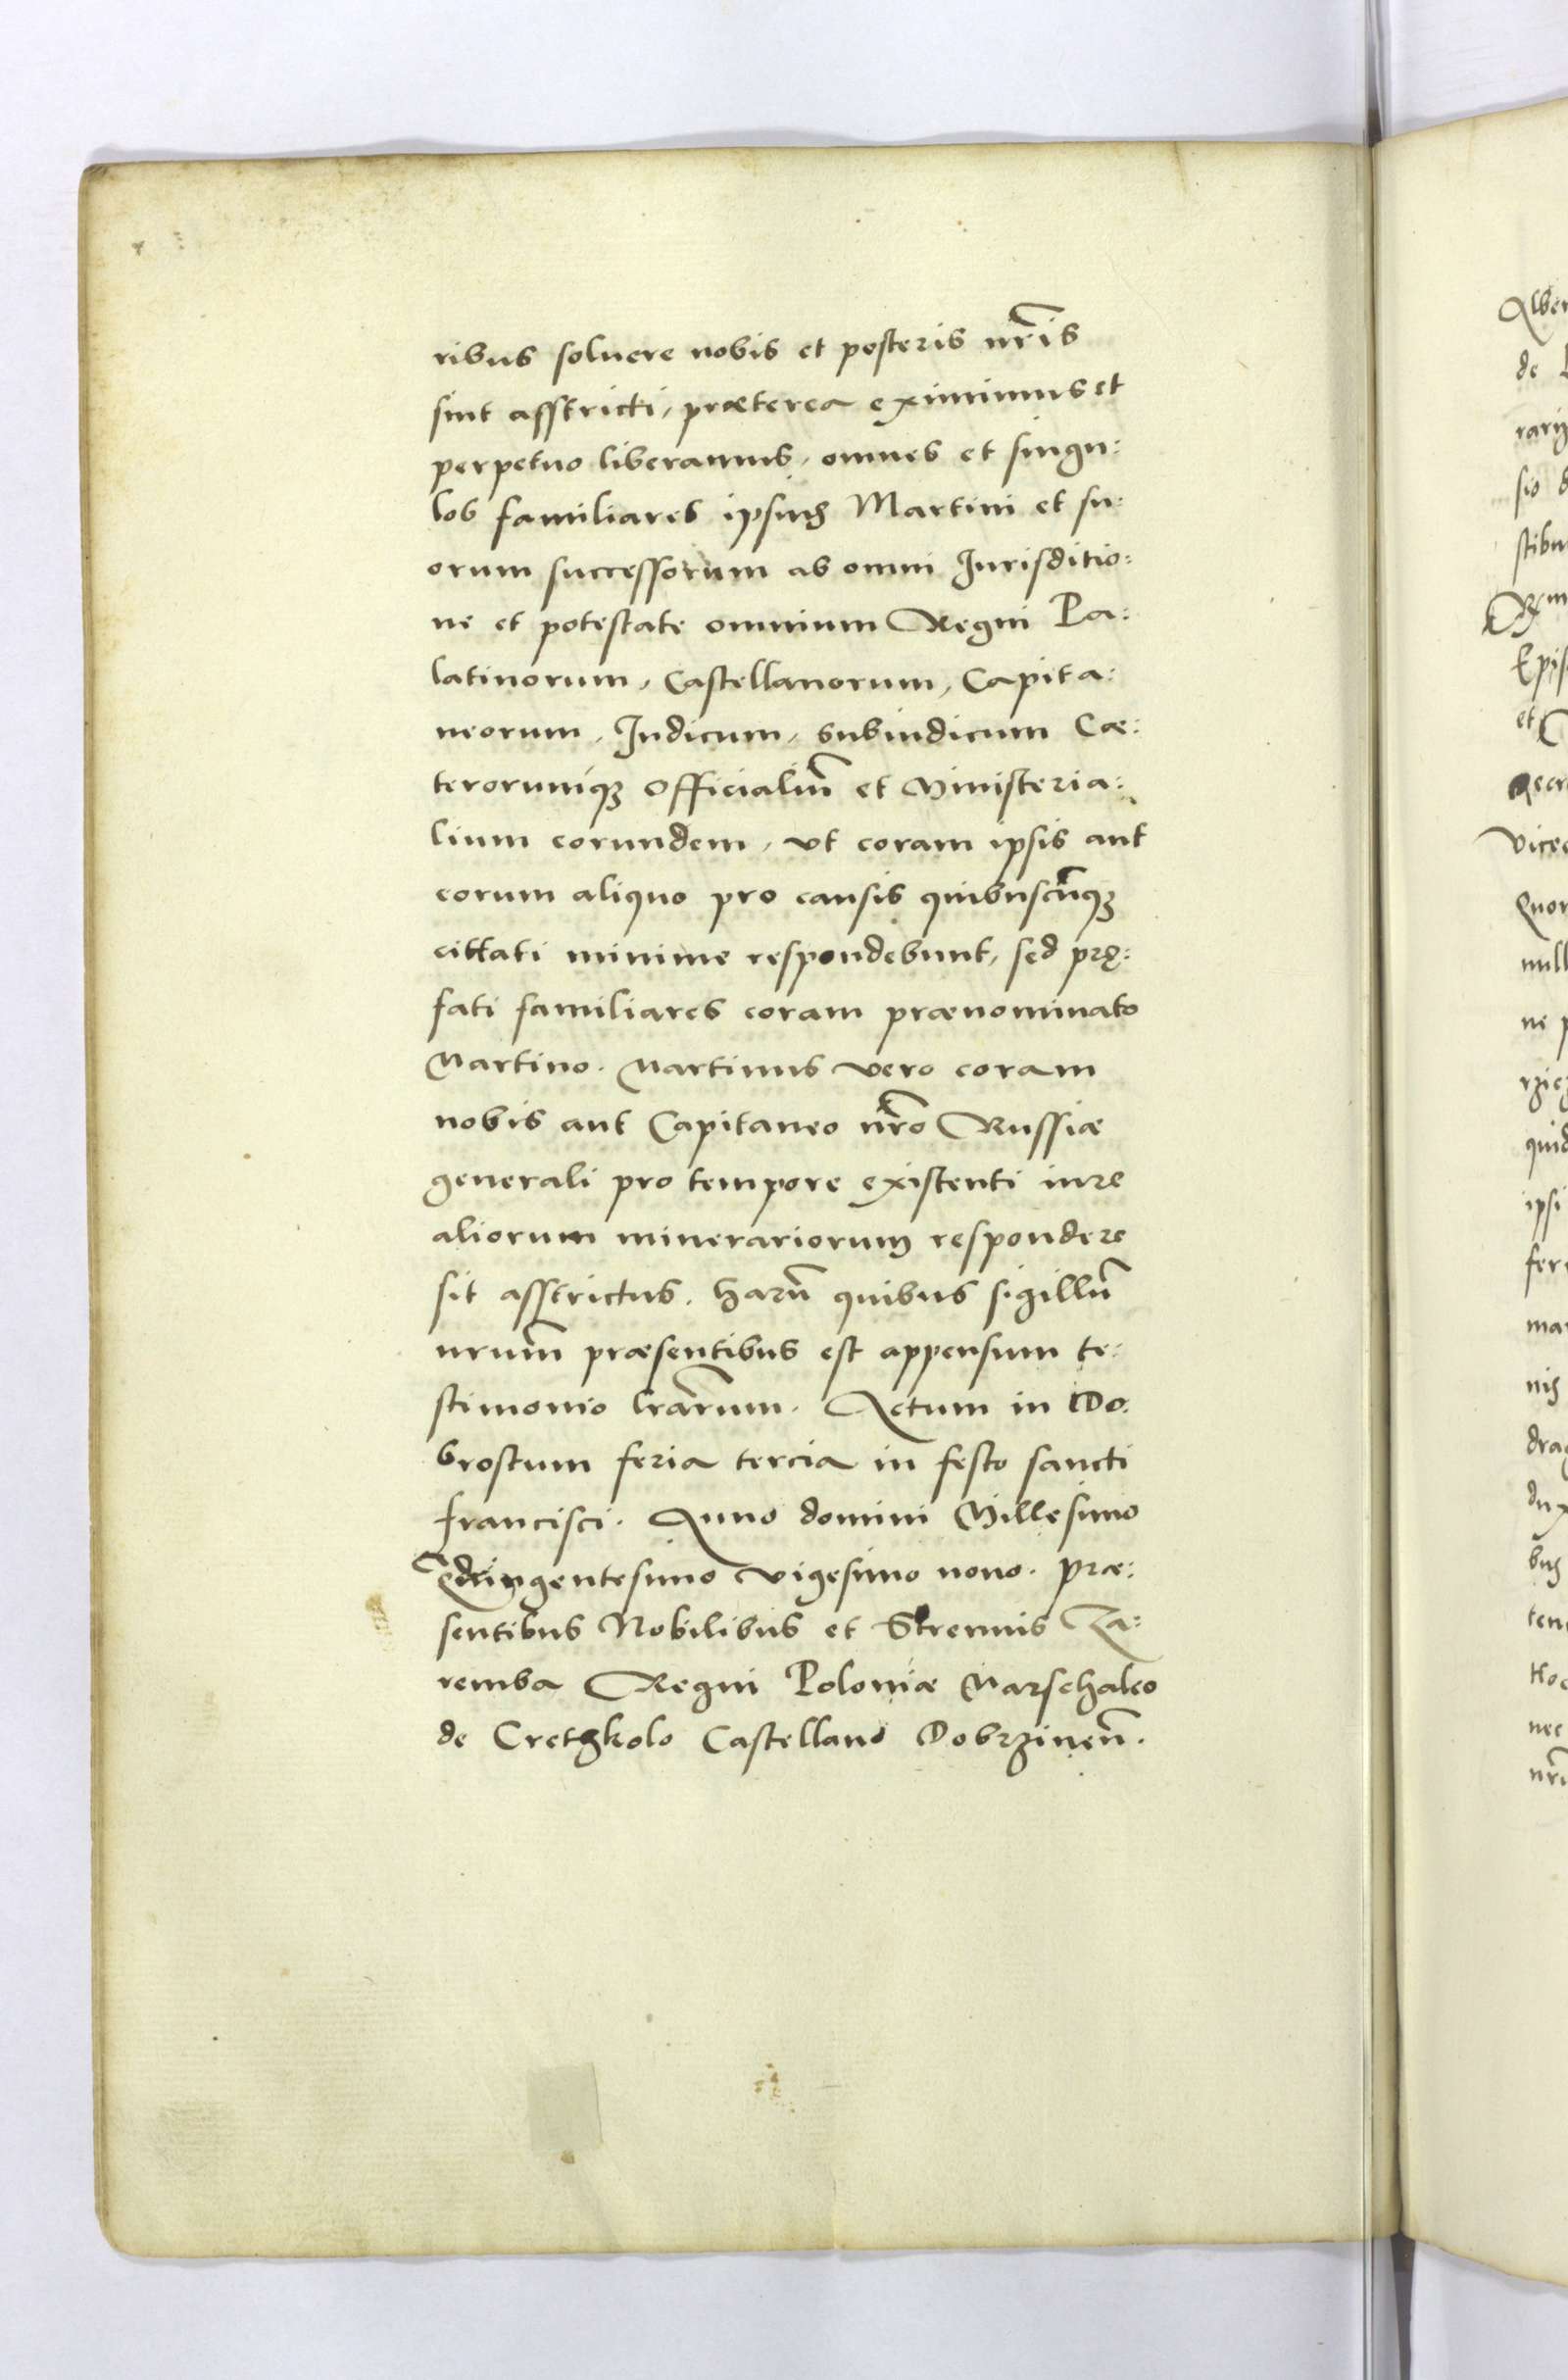 ribus soluere nobis et posteris nr̃is
sint asstricti, præterea eximimus et
perpetuo liberamus, omnes et singu:
los familiares ipsius Martini et su:
orum successorum ab omni Iurisditio:
ne et potestate omnium Regni Pa:
latinorum, Castellanorum, Capita:
neorum, Iudicum, subiudicum Cæ:
terorumqꝫ Officialiũ et Ministeria:
lium eorundem, vt coram ipsis aut
eorum aliquo pro causis quibuscũqꝫ
cittati minime respondebunt, sed prę:
fati familiares coram prænominato
Martino. Martinus vero coram
nobis aut Capitaneo nr̃o Russiæ
generali pro tempore existenti iure
aliorum minerariorum respondere
sit asstrictus. Harũ quibus sigillũ
nrum̃ præsentibus est appensum te:
stimonio lr̃arum. Actum in Do:
brostum feria tercia in festo sancti
Francisci. Anno domini Millesimo
Qdringentesimo vigesimo nono. Præ:
sentibus Nobilibus et Strenuis Za:
remba Regni Poloniæ Marschalco
de Cretzkolo Castellano Dobrzineñ.
de
sio
et
ne
ipsi